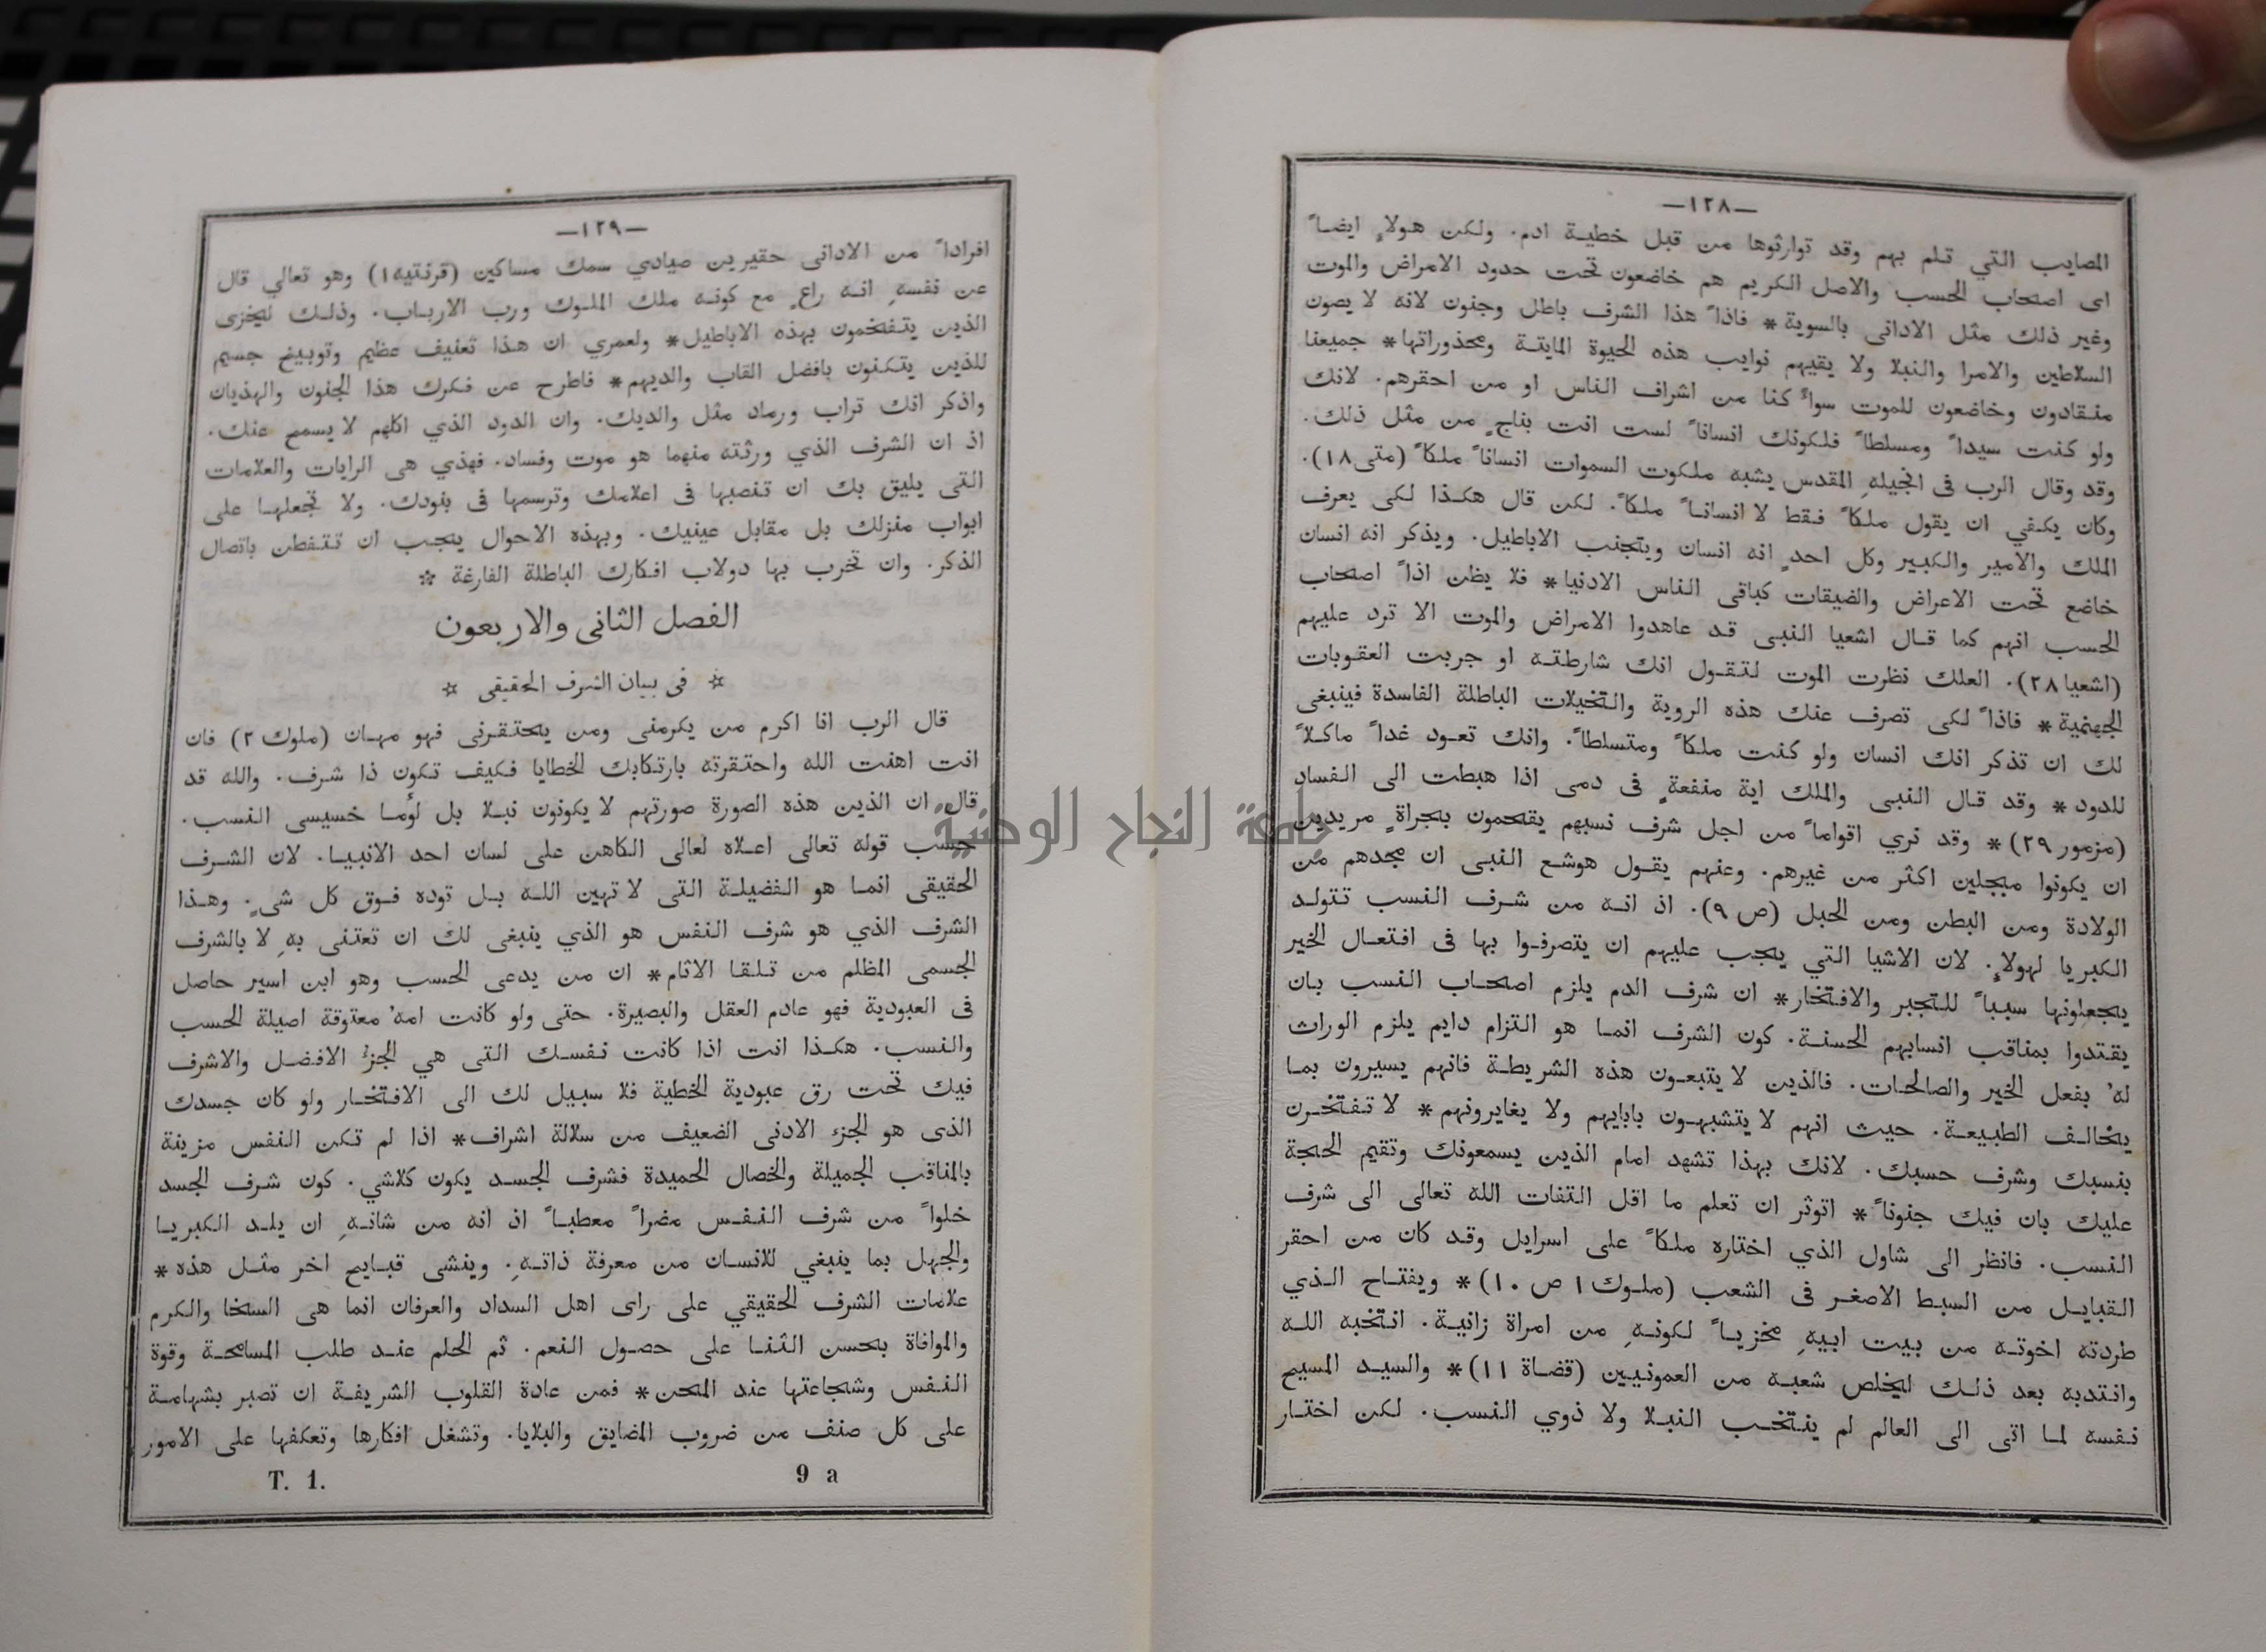 —١٢٨—
المصايب التي تلم بهم وقد توارثوها من قبل خطية ادم. ولكن هولاءِ ايضاً
اى اصحاب الحسب والاصل الكريم هم خاضعون تحت حدود الامراض والموت
وغير ذلك مثل الادانى بالسوية* فاذاً هذا الشرف باطل وجنون لانه لا يصون
السلاطين والامرا والنبلا ولا يقيهم نوايب هذه الحيوة المايتة ومحذوراتها* جميعنا
منقادون وخاضعون للموت سواءً كنا من اشراف الناس او من احقرهم. لانك
ولو كنت سيداً ومسلطاً فلكونك انساناً لست انت بناجٍ من مثل ذلك.
وقد وقال الرب فى انجيلهِ المقدس يشبه ملكوت السموات انساناً ملكاً (متى ١٨).
وكان يكفي ان يقول ملكاً فقط لا انساناً ملكاً. لكن قال هكذا لكى يعرف
الملك والامير والكبير وكل احدٍ انه انسان ويتجنب الاباطيل. ويذكر انه انسان
خاضع تحت الاعراض والضيقات كباقى الناس الادنيا* فلا يظن اذاً اصحاب
الحسب انهم كما قال اشعيا النبى قد عاهدوا الامراض والموت الا ترد عليهم
(اشعيا ٢٨). العلك نظرت الموت لتقول انك شارطته او جربت العقوبات
الجهنمية* فاذاً لكى تصرف عنك هذه الروية والتخيلات الباطلة الفاسدة فينبغى
لك ان تذكر انك انسان ولو كنت ملكاً ومتسلطاً. وانك تعود غداً ماكلاً
للدود* وقد قال النبى والملك اية منفعةٍ فى دمى اذا هبطت الى الفساد
(مزمور ٢٩)* وقد نري اقواماً من اجل شرف نسبهم يقتحمون بجراةٍ مريدين
ان يكونوا مبجلين اكثر من غيرهم. وعنهم يقول هوشع النبى ان مجدهم من
الولادة ومن البطن ومن الحبل (ص ٩). اذ انه من شرف النسب تتولد
الكبريا لهولاءِ. لان الاشيا التي يجب عليهم ان يتصرفوا بها فى افتعال الخير
يجعلونها سبباً للتجبر والافتخار* ان شرف الدم يلزم اصحاب النسب بان
يقتدوا بمناقب انسابهم الحسنة. كون الشرف انما هو التزام دايم يلزم الوراث
لهُ بفعل الخير والصالحات. فالذين لا يتبعون هذه الشريطة فانهم يسيرون بما
يخالف الطبيعة. حيث انهم لا يتشبهون بابايهم ولا يغايرونهم* لا تفتخرن
بنسبك وشرف حسبك. لانك بهذا تشهد امام الذين يسمعونك وتقيم الحجة
عليك بان فيك جنوناً* اتوثر ان تعلم ما اقل التفات الله تعالى الى شرف
النسب. فانظر الى شاول الذي اختاره ملكاً على اسرايل وقد كان من احقر
القبايل من السبط الاصغر فى الشعب (ملوك ١ ص ١٠)* ويفتاح الذي
طردته اخوته من بيت ابيهِ مخزياً لكونهِ من امراة زانية. انتخبه الله
وانتدبه بعد ذلك ليخلص شعبه من العمونيين (قضاة ١١)* والسيد المسيح
نفسه لما اتى الى العالم لم ينتخب النبلا ولا ذوي النسب. لكن اختار
—١٢٩—
افراداً من الادانى حقيرين صيادي سمك مساكين (قرنتيه ١) وهو تعالي قال
عن نفسهِ انه راعٍ مع كونه ملك الملوك ورب الارباب. وذلك ليخزى
الذين يتفخمون بهذه الاباطيل* ولعمري ان هذا تعنيف عظيم وتوبيخ جسيم
للذين يتكنون بافضل القاب والديهم* فاطرح عن فكرك هذا الجنون والهذيان
واذكر انك تراب ورماد مثل والديك. وان الدود الذي اكلهم لا يسمح عنك.
اذ ان الشرف الذي ورثته منهما هو موت وفساد. فهذي هى الرايات والعلامات
التى يليق بك ان تنصبها فى اعلامك وترسمها فى بنودك. ولا تجعلها على
ابواب منزلك بل مقابل عينيك. وبهذه الاحوال يجب ان تتفطن باتصال
الذكر. وان تخرب بها دولاب افكارك الباطلة الفارغة ☆
الفصل الثانى والاربعون
☆ فى بيان الشرف الحقيقى ☆
قال الرب انا اكرم من يكرمنى ومن يحتقرنى فهو مهان (ملوك ٢) فان
انت اهنت الله واحتقرته بارتكابك الخطايا فكيف تكون ذا شرف. والله قد
قال ان الذين هذه الصورة صورتهم لا يكونون نبلا بل لوما خسيسى النسب.
حسب قوله تعالى اعلاه لعالى الكاهن على لسان احد الانبيا. لان الشرف
الحقيقى انما هو الفضيلة التى لا تهين الله بل توده فوق كل شىءٍ. وهذا
الشرف الذي هو شرف النفس هو الذي ينبغى لك ان تعتنى بهِ لا بالشرف
الجسمى المظلم من تلقا الاثام* ان من يدعى الحسب وهو ابن اسير حاصل
فى العبودية فهو عادم العقل والبصيرة. حتى ولو كانت امهُ معتوقة اصيلة الحسب
والنسب. هكذا انت اذا كانت نفسك التى هي الجزءُ الافضل والاشرف
فيك تحت رق عبودية الخطية فلا سبيل لك الى الافتخار ولو كان جسدك
الذى هو الجزء الادنى الضعيف من سلالة اشراف* اذا لم تكن النفس مزينة
بالمناقب الجميلة والخصال الحميدة فشرف الجسد يكون كلاشي. كون شرف الجسد
خلواً من شرف النفس مضراً معطباً اذ انه من شانهِ ان يلد الكبريا
والجهل بما ينبغي للانسان من معرفة ذاتهِ. وينشى قبايح اخر مثل هذه*
علامات الشرف الحقيقي على راى اهل السداد والعرفان انما هى السخا والكرم
والموافاة بحسن الثنا على حصول النعم. ثم الحلم عند طلب المسامحة وقوة
النفس وشجاعتها عند المحن* فمن عادة القلوب الشريفة ان تصبر بشهامة
على كل صنف من ضروب المضايق والبلايا. وتشغل افكارها وتعكفها على الامور
T. 1. 9 a
جامعة النجاح الوطنية